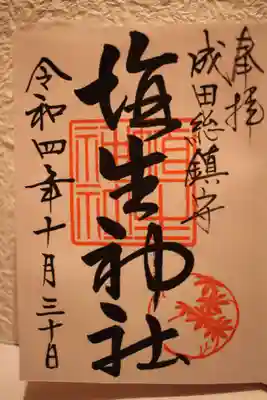 奉拝
成田総鎮守
埴生神社
令和四年十月三十日